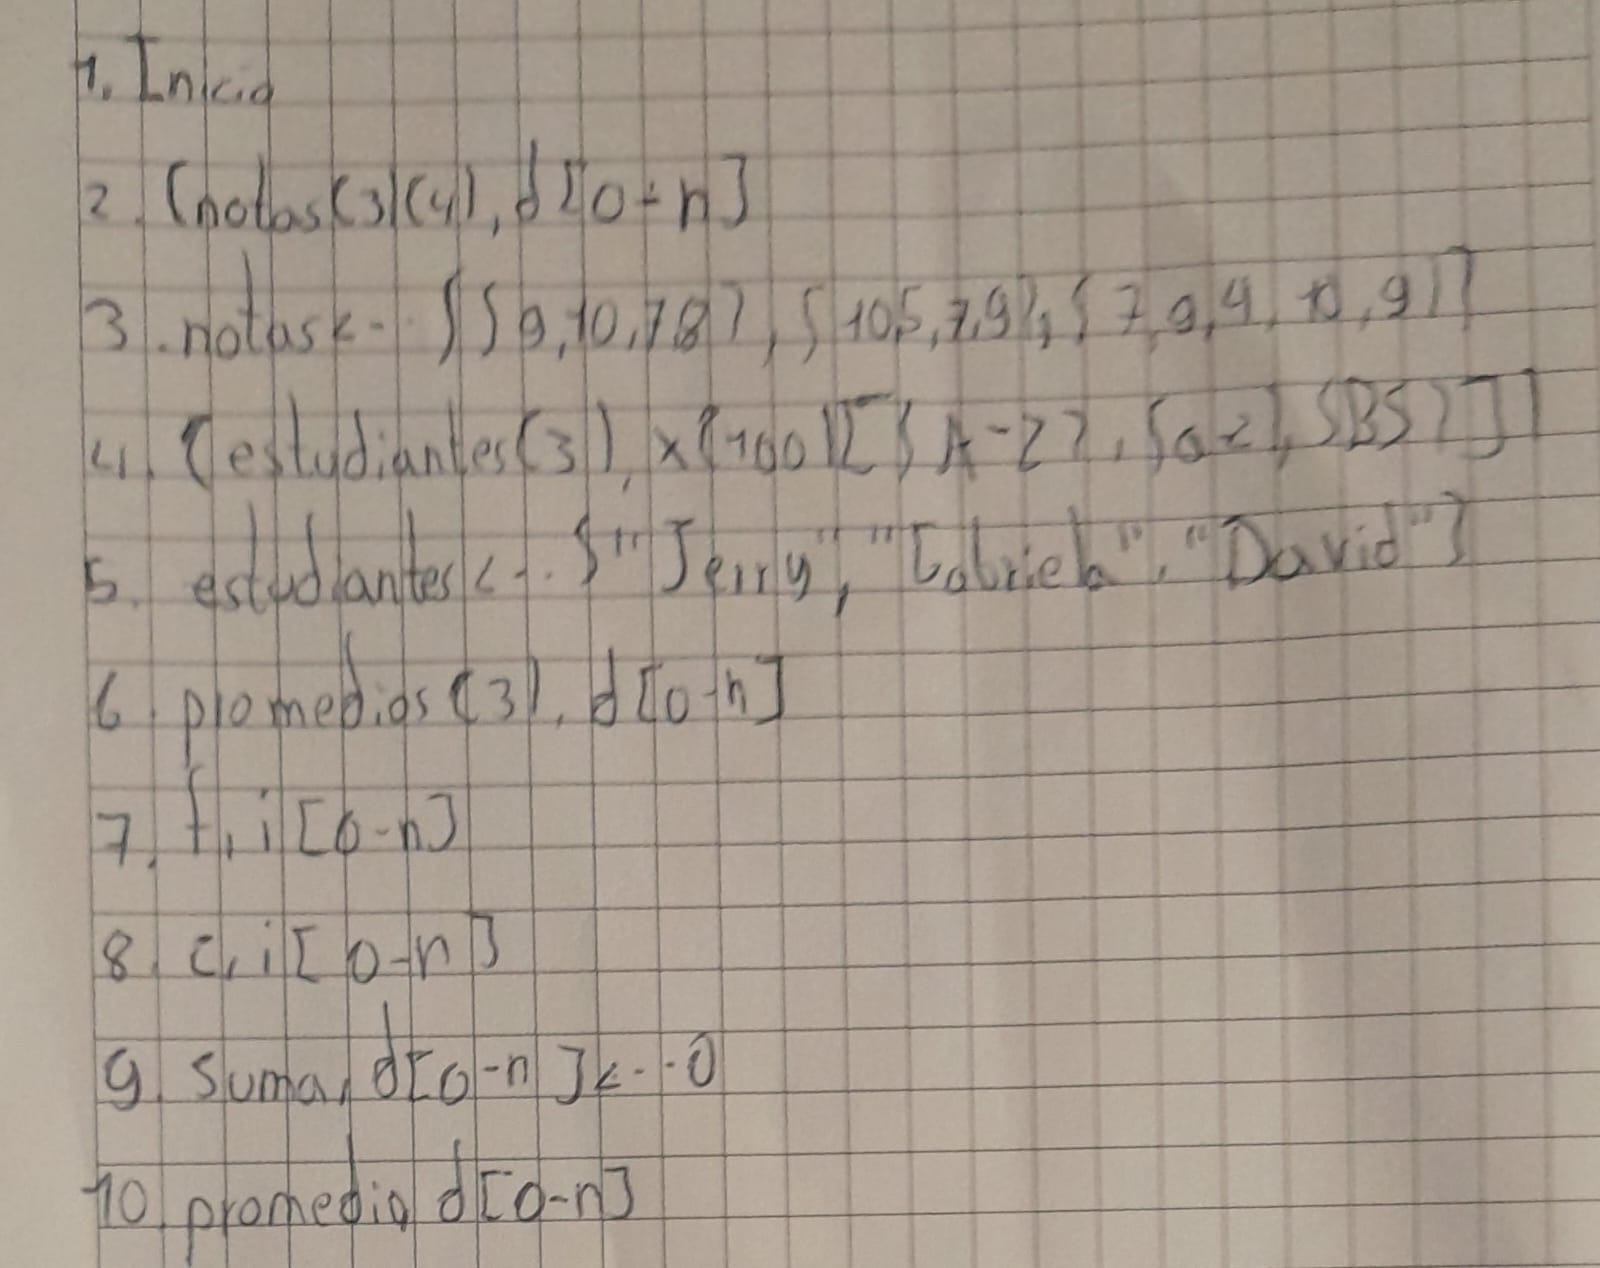 1. Inicio
2. (notas(3)(4), d[0-n]
3. notas<-- {{9,10,7,8}, {10,5,7,9}, {7,9,4,10,9}}
4. (estudiantes(3), x(100)[[{A-Z}, {a-z}, {BS}]]
5. estudiantes<-- {"Jerry", "Gabriela", "David"}
6. promedios(3), d[0-n]
7. f, i[0-n]
8. c, i[0-n]
9. suma, d[0-n]<--0
10. promedio, d[0-n]